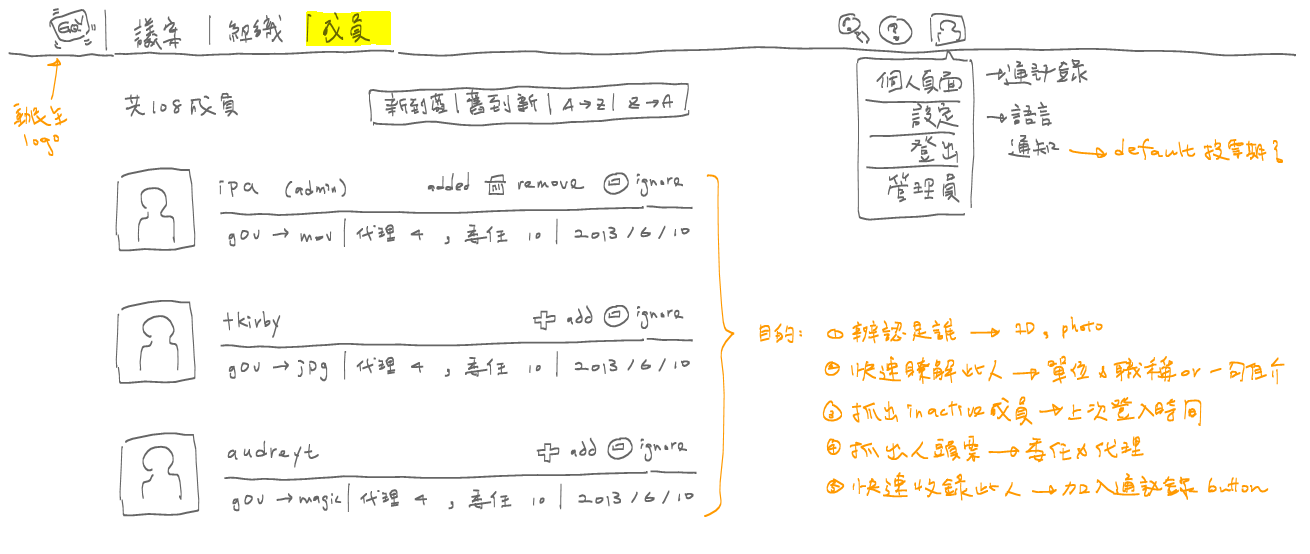 議案 | 組織 | 成員
個人頁面 →通訊錄
設定 →語言
登出 通知 → default 投票期?
管理員
動民主
logo
共108成員
新到舊 | 舊到新 | A→Z | Z→A
ipa (admin) added remove ignore
g0v → mov | 代理 4 , 委任 10 | 2013/6/10
tkirby add ignore
g0v → jpg | 代理 4 , 委任 10 | 2013/6/10
audreyt add ignore
g0v → magic | 代理 4 , 委任 10 | 2013/6/10
目的: ① 辨認是誰 → ID, photo
② 快速瞭解此人 → 單位 & 職稱 or 一句自介
③ 抓出 inactive 成員 → 上次登入時間
④ 抓出人頭票 → 委任 & 代理
⑤ 快速收錄此人 → 加入通訊錄 button